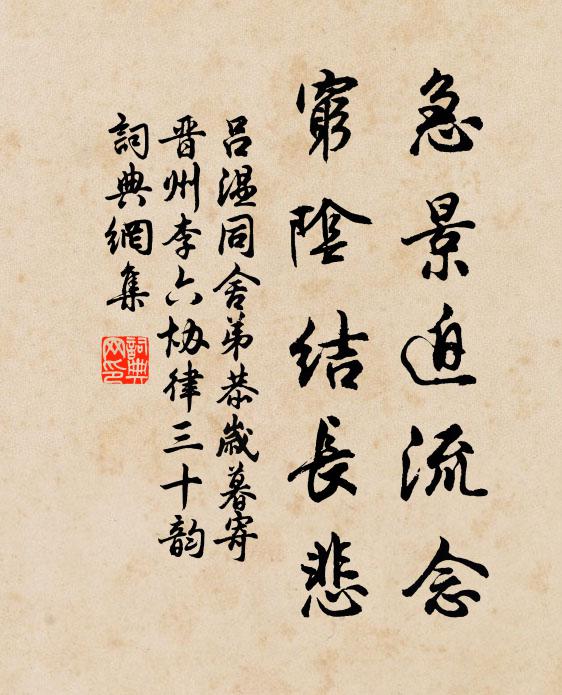 急景迫流念
窮陰結長悲
呂温同舍弟恭歲暮寄
晋州李六协律三十韵
詞典網集
詞典
网印